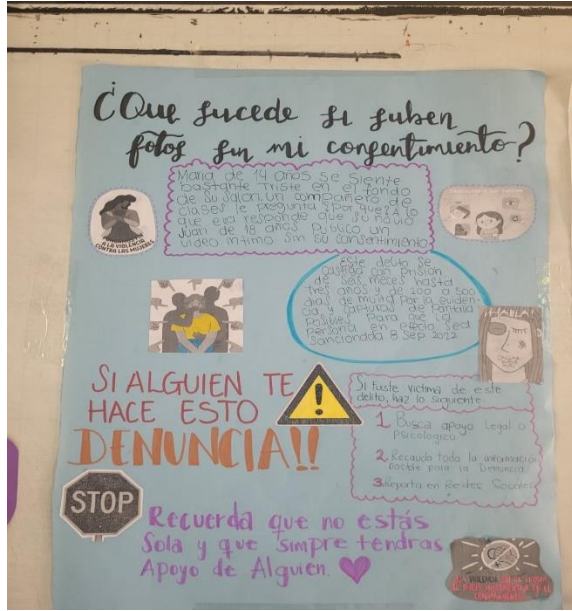 ¿Que sucede si suben
fotos sin mi consentimiento?
Maria de 14 años se siente
bastante triste en el fondo
de su salon. un compañero de
clases le pregunta ¿Por que? A lo
que ella responde que su novio
Juan de 18 años Publico un
video intimo Sin su consentimiento
A LA VIOLENCIA
CONTRA LAS MUJERES
Este delito Se
castiga con prision
de seis meces hasta
tres años y de 200 a 500
dias de multa Por la eviden-
cia y capturas de Pantalla
Posibles Para que la
Persona en efecto Sea
Sancionada 8 Sep 2022
SI ALGUIEN TE
HACE ESTO
DENUNCIA!!
Si fuiste victima de este
delito, haz lo siguiente
1 Busca apoyo Legal o
Psicologico
2 Recauda toda la información
Posible para la Denuncia
3.Reporta en Redes Sociales
STOP
Recuerda que no estás
Sola y que Simpre tendras
Apoyo de Alguien.
LA VIOLENCIA